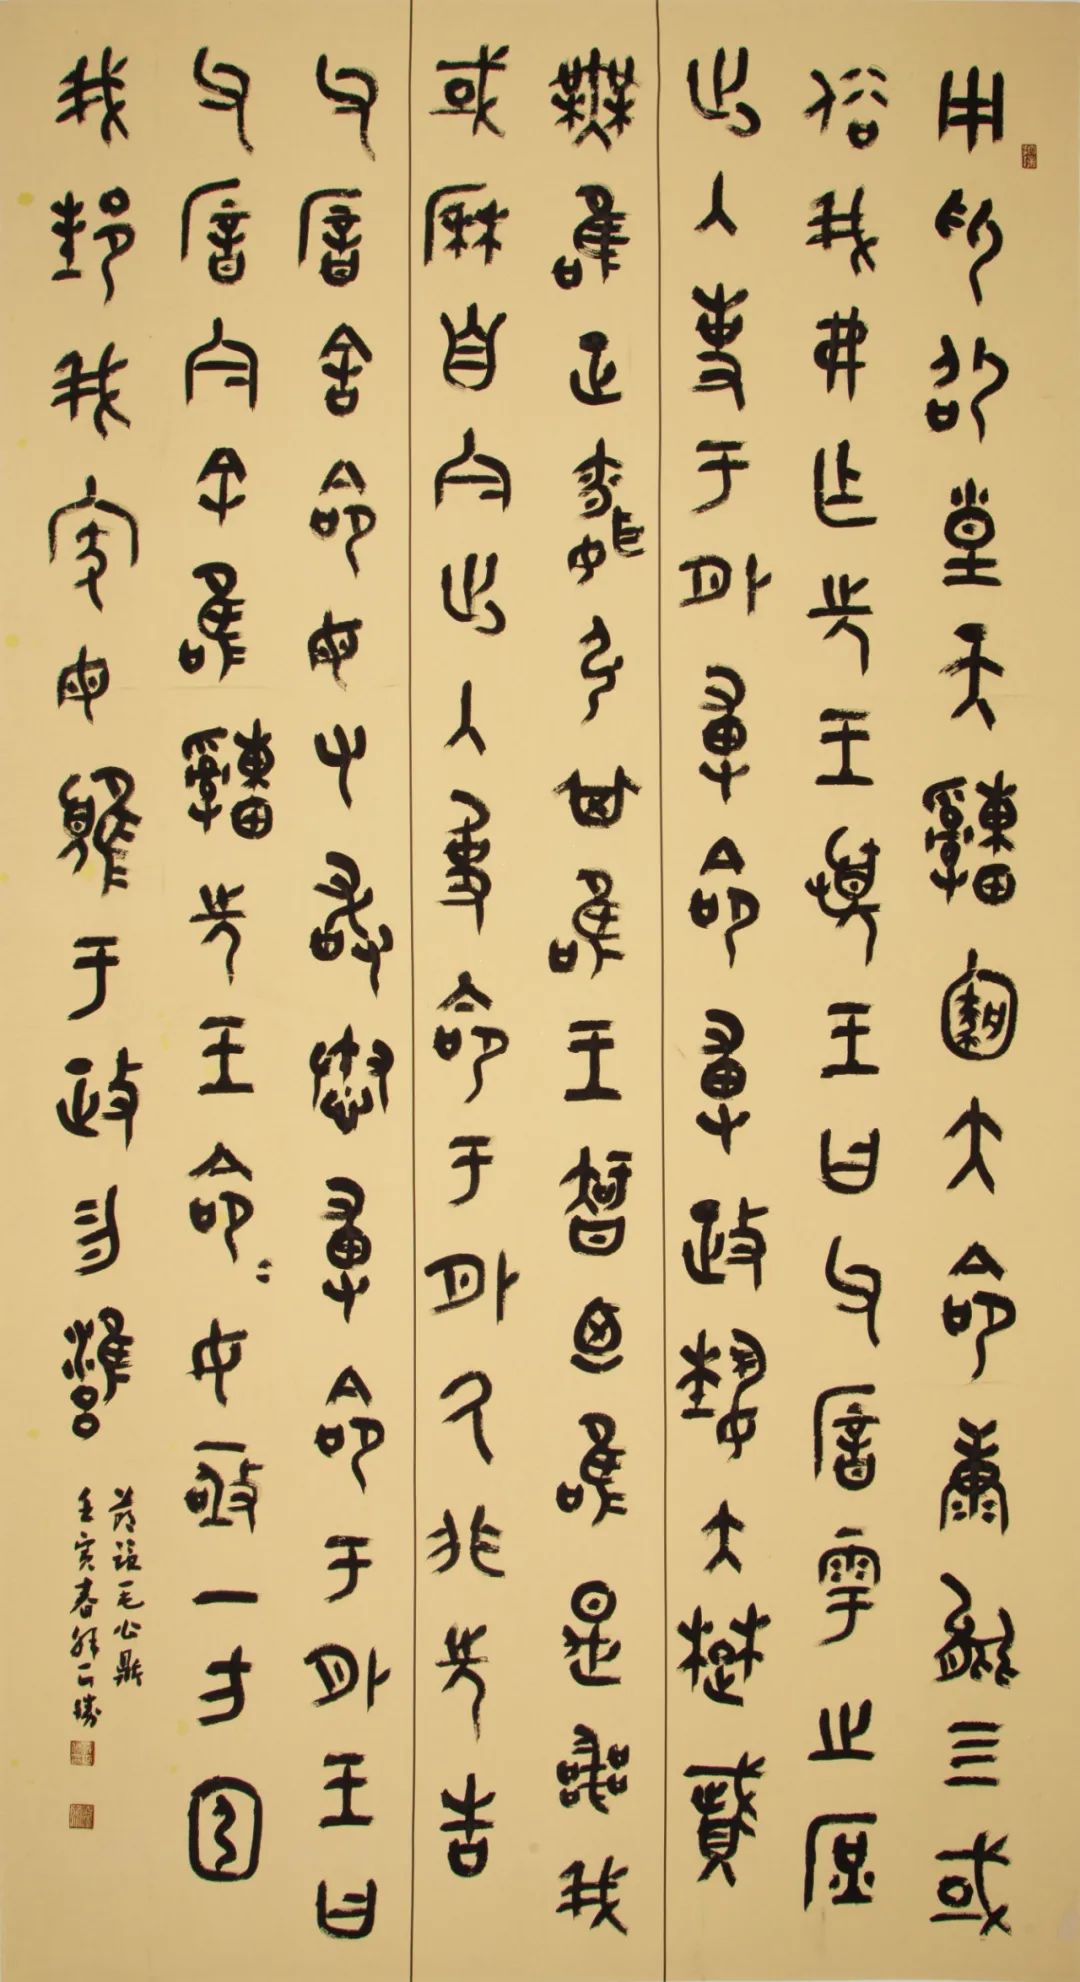 用卬卲皇天緟大命康能三或
俗我弗乍先王王曰父厝雩之庶
出入事于外尃命尃政埶大楚賦
無唯正聞弘其唯王智廼唯是喪我
或厤自今出入尃命于外厥非先告
父厝舍命毋又敢憃尃命于外王曰
父厝今余唯緟先王命〓女亟一方
我邦我家毋于政勿雝
節臨毛公鼎
壬寅春